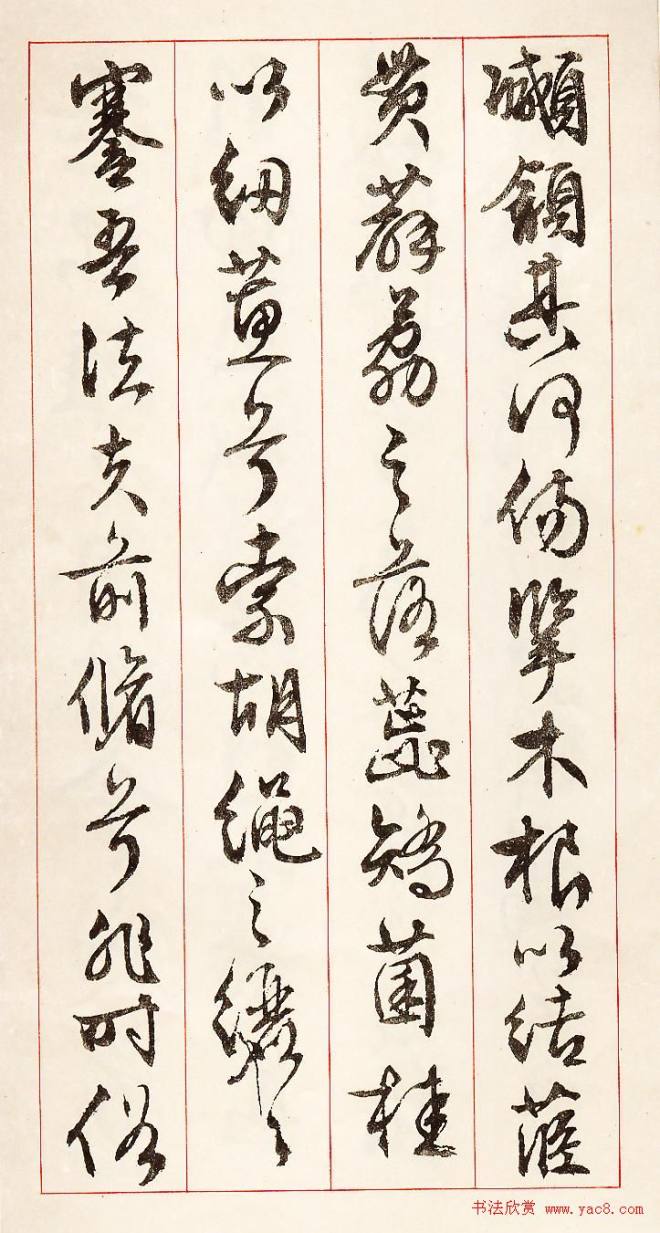 顑頷其何傷擥木根以結茝
貫薜荔之落蕊矯菌桂
以紉蕙兮索胡繩之纚々
謇吾法夫前脩兮非时俗
书法欣赏 www.yac8.com